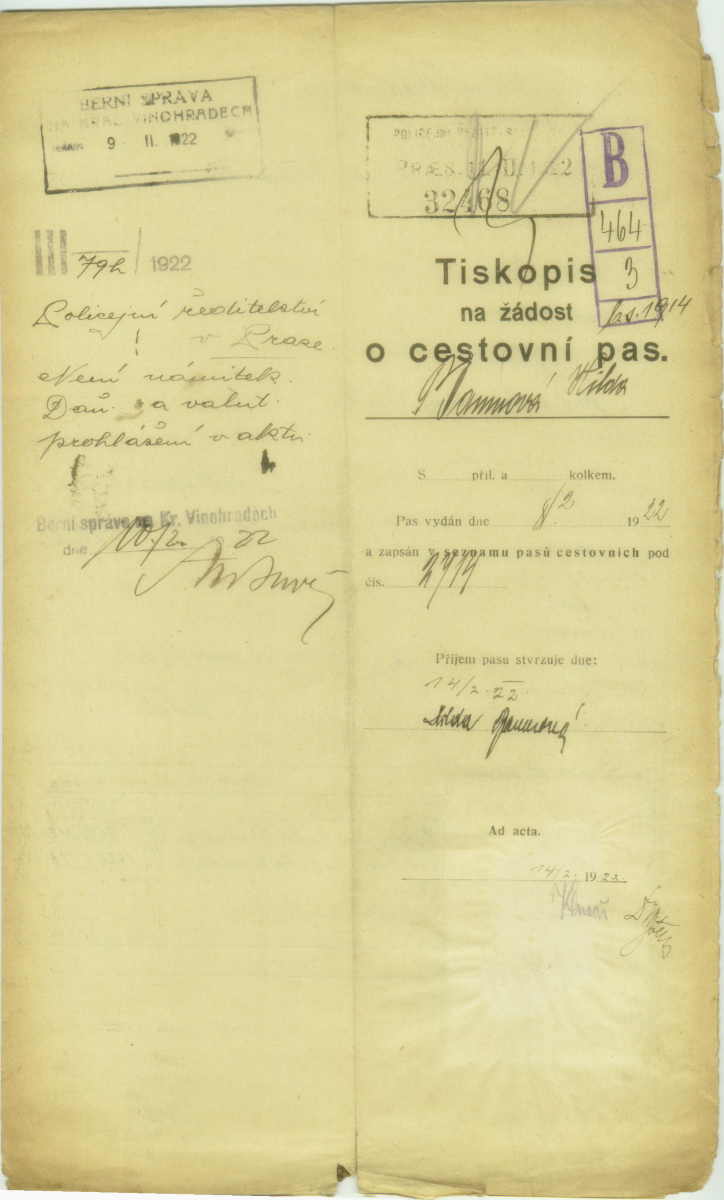 BERNÍ SPRÁVA
NA KRÁL. VINOHRADECH
9 II. 1922
III 79h / 1922
Policejní ředitelství
v Praze.
Není námitek.
Daň. a valut.
prohlášení v aktu.
Berní správa na Kr. Vinohradech
dne 10/2. 22
PRÆS.
32468
B
464
3
Tiskopis
na žádost
o cestovní pas.
Hilda
S příl. a kolkem.
Pas vydán dne 8/2 1922
a zapsán v seznamu pasů cestovních pod
čís. 2914
Příjem pasu stvrzuje dne:
14/2. 22.
Hilda
Ad acta.
14/2. 1922.